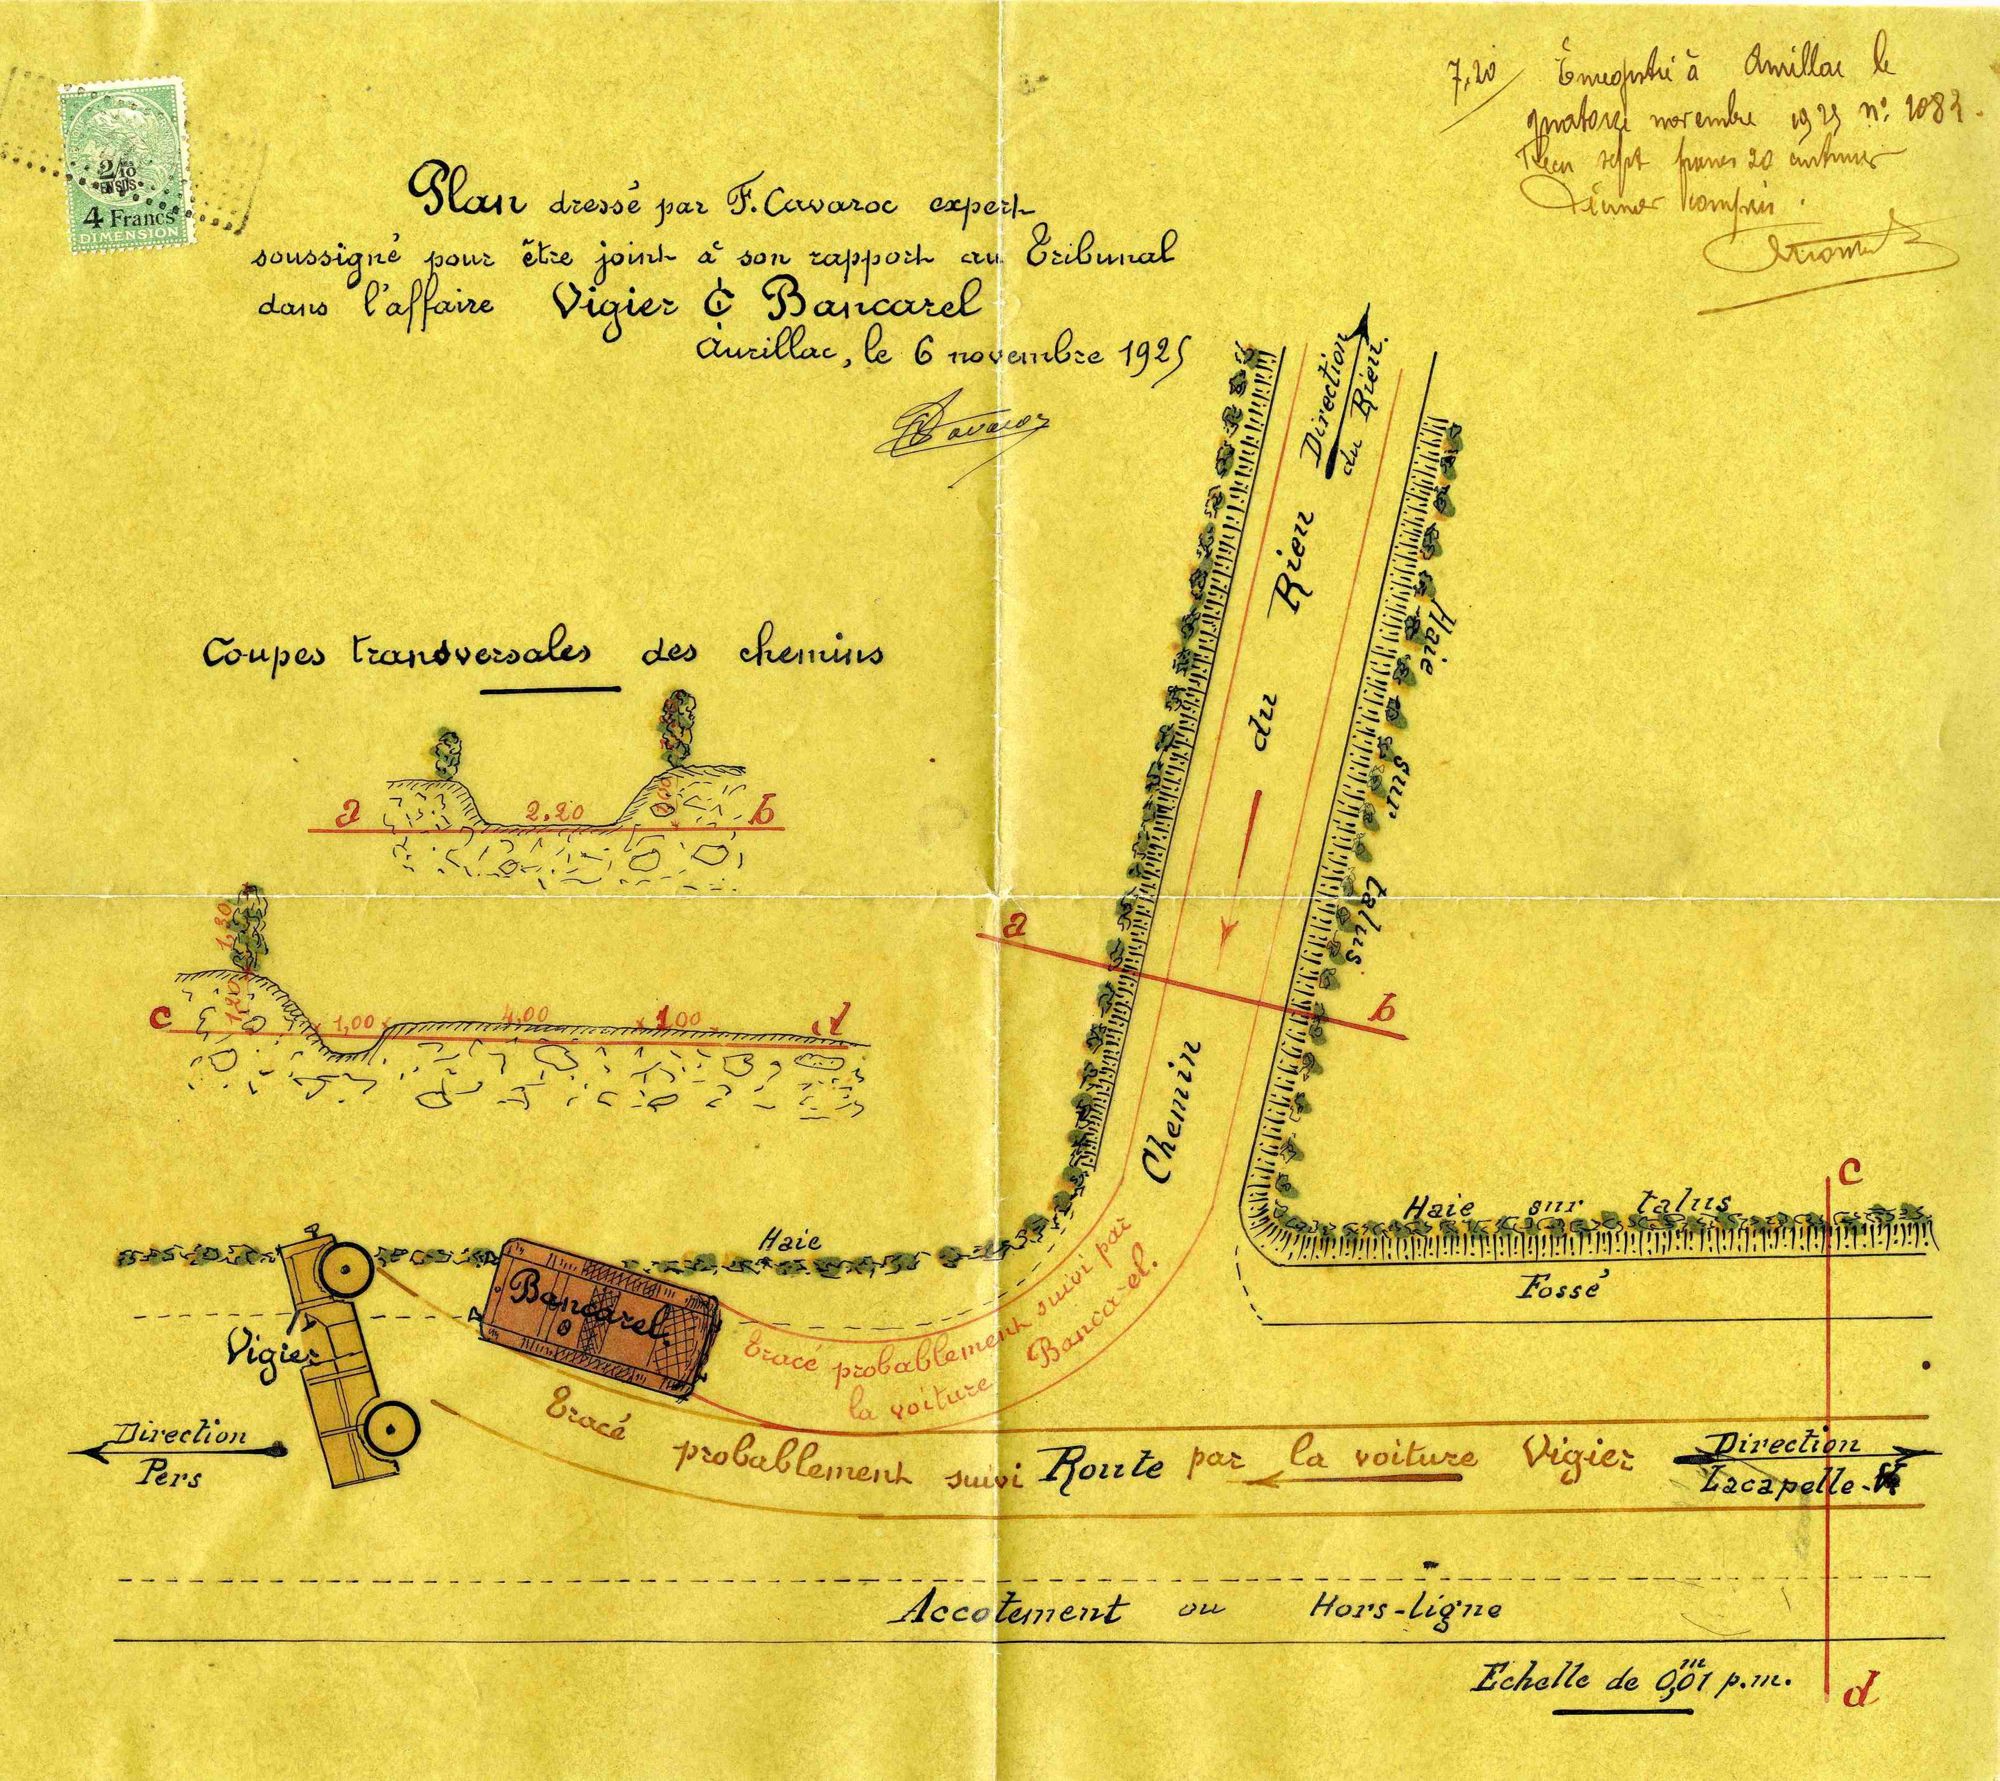 2/10
EN SUS
4 Francs
DIMENSION
7,20 Enregistré à Aurillac le
quatorze novembre 1925 n° 1082.
Reçu sept francs 20 centimes
Décimes compris.
Plan dressé par F. Cavaroc expert
soussigné pour être joint à son rapport au Tribunal
dans l'affaire Vigier & Bancarel
Aurillac, le 6 novembre 1925
Cavaroc
Direction
du Rieu.
Coupes transversales des chemins
a 2,20 b
1,30
1,20
c 1,00 4,00 1,00 d
Chemin du Rieu
Haie sur talus
a
b
c
Haie sur talus
Fossé
Haie
Bancarel
Vigier
Tracé probablement suivi par
la voiture Bancarel.
Direction
Pers
Tracé probablement suivi par la voiture Vigier
Route
Direction
Lacapelle-V
Accotement ou Hors-ligne
Echelle de 0,01 m p.m.
d